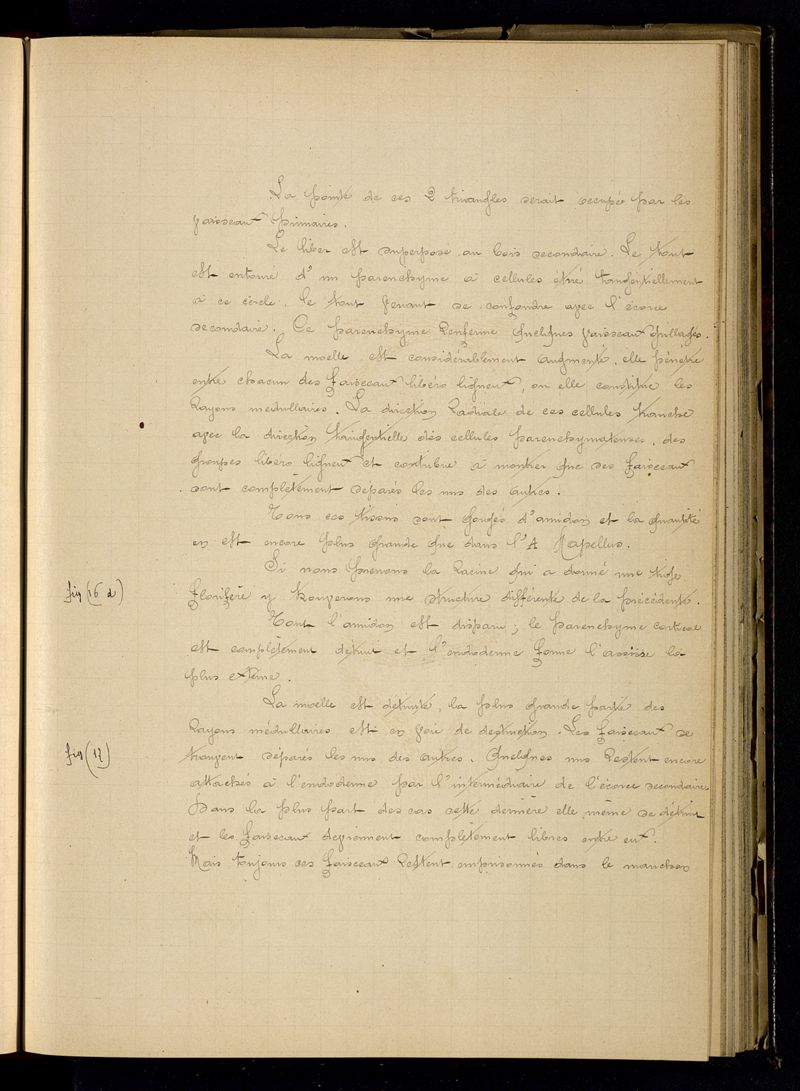 La pointe de ces 2 triangles serait occupée par les
vaisseaux primaires.
Le liber est superposé au bois secondaire. Le tout
est entouré d'un parenchyme à cellules étiré tangentiellement
à ce cercle, le tout venant se confondre avec l'écorce
secondaire. Ce parenchyme renferme quelques vaisseaux grillagés.
La moelle est considérablement augmenté, elle pénètre
entre chacun des faisceaux libéro ligneux, ou elle constitue les
rayons médullaires. La direction radiale de ces cellules tranche
avec la direction traingentielle des cellules parenchymateuses, des
groupes libéro ligneux et contribue à montrer que ses faisceaux
sont complètement séparés les uns des autres.
Tous ces tissus sont gorgés d'amidon et la quantité
en est encore plus grande que dans l'A Napellus.
Si nous prenons la racine qui a donné une tige
fig (16 d)
florifère y trouverons une structure différente de la précédente.
Tout l'amidon est disparu ; le parenchyme cortical
est complètement détruit et l'endoderme forme l'assise la
plus externe.
La moelle est détruite, la plus grande partie des
rayons médullaires est en voie de destruction. Les faisceaux se
fig (17)
trouvent séparés les uns des autres. Quelques uns restent encore
attachés à l'endoderme par l'intermédiaire de l'écorce secondaire.
Dans la plus part des cas cette dernière elle même se détruit
et les faisceaux deviennent complètement libres entre eux.
Mais toujours ces faisceaux restent emprisonnés dans le manchon